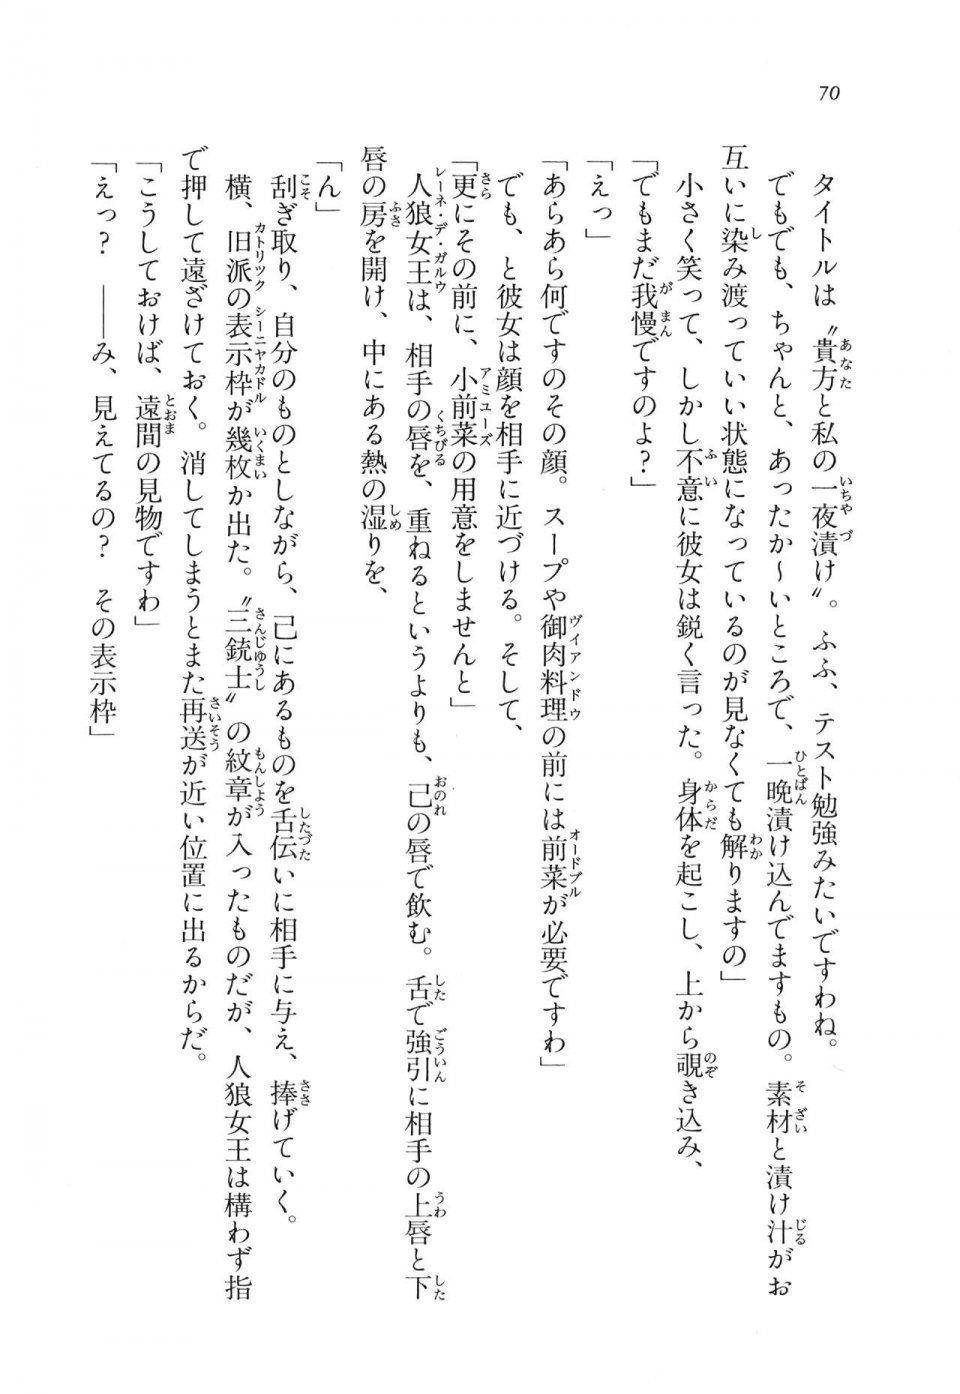 70
タイトルは〝貴方と私の一夜漬け〟。ふふ、テスト勉強みたいですわね。
でもでも、ちゃんと、あったか～いところで、一晩漬け込んでますもの。素材と漬け汁がお
互いに染み渡っていい状態になっているのが見なくても解りますの」
小さく笑って、しかし不意に彼女は鋭く言った。身体を起こし、上から覗き込み、
「でもまだ我慢ですのよ？」
「えっ」
「あらあら何ですのその顔。スープや御肉料理の前には前菜が必要ですわ」
でも、と彼女は顔を相手に近づける。そして、
「更にその前に、小前菜の用意をしませんと」
人狼女王は、相手の唇を、重ねるというよりも、己の唇で飲む。舌で強引に相手の上唇と下
唇の房を開け、中にある熱の湿りを、
「ん」
刮ぎ取り、自分のものとしながら、己にあるものを舌伝いに相手に与え、捧げていく。
横、旧派の表示枠が幾枚か出た。〝三銃士〟の紋章が入ったものだが、人狼女王は構わず指
で押して遠ざけておく。消してしまうとまた再送が近い位置に出るからだ。
「こうしておけば、遠間の見物ですわ」
「えっ？　――み、見えてるの？　その表示枠」